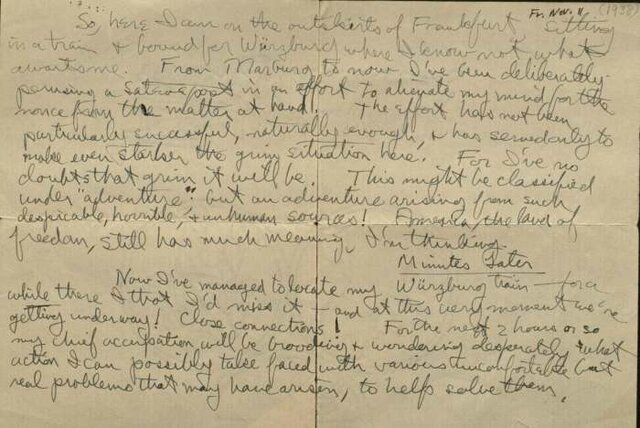 Fri. Nov. 11 (1938)
So, here I am on the outskirts of Frankfurt sitting
in a train & bound for Würzburg where I know not what
awaits me. From Marburg to now I've been deliberately
perusing a Satevepost in an effort to alienate my mind for the
nonce from the matter at hand. The effort has not been
particularly successful, naturally enough, & has served only to
make even starker the grim situation here. For I've no
doubts that grim it will be. This might be classified
under "adventure": but an adventure arising from such
despicable, horrible, & unhuman sources! America, the land of
freedom, still has much meaning, I'm thinking.
Minutes Later
Now I've managed to locate my Würzburg train — for a
while there I thot I'd miss it — and at this very moment we're
getting underway! Close connections! For the next 2 hours or so
my chief occupation will be brooding & wondering desperately what
action I can possibly take faced with various uncomfortable but
real problems that may have arisen, to help solve them.